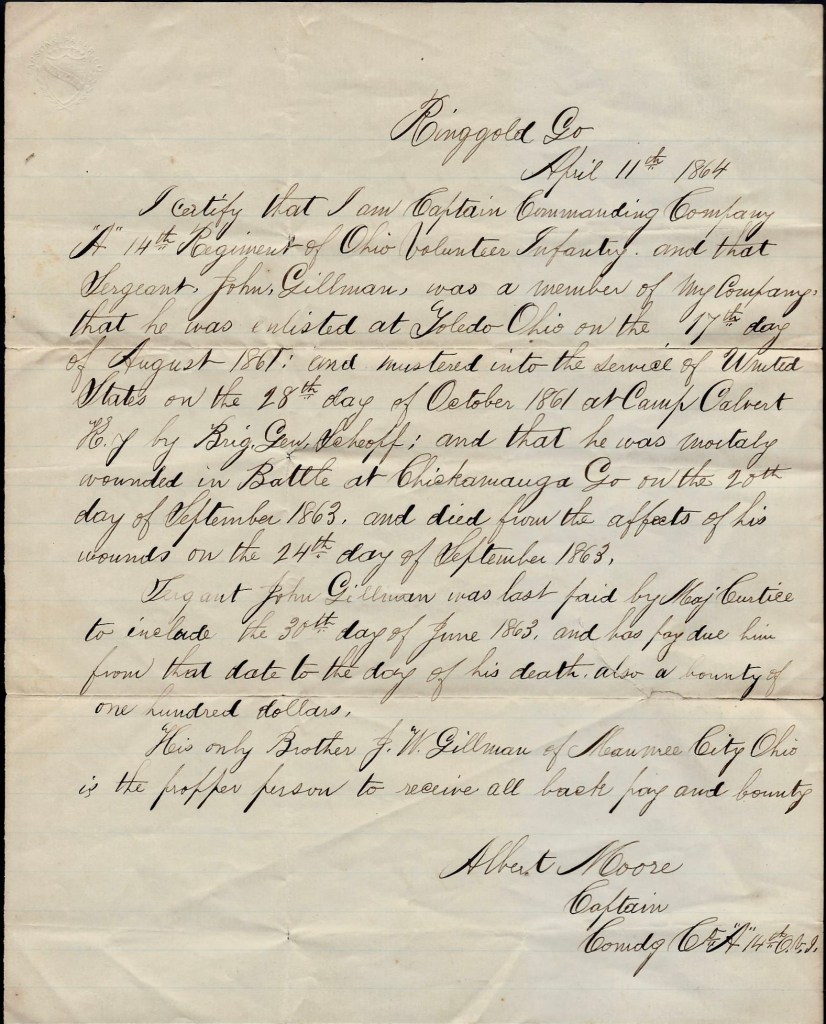 Ringgold Ga
April 11th 1864
I certify that I am Captain Commanding Company
"A" 14th Regiment of Ohio Volunteer Infantry. and that
Sergeant, John, Gillman, was a member of My Company,
that he was enlisted at Toledo Ohio on the 17th day
of August 1861: and mustered into the service of United
States on the 28th day of October 1861 at Camp Calvert
K.y by Brig, Gen, Scheoff; and that he was mortaly
wounded in Battle at Chickamauga Ga on the 20th
day of September 1863, and died from the affects of his
wounds on the 24th day of September 1863,
Sergant John Gillman was last paid by Maj Curtice
to include the 30th day of June 1863, and has pay due him
from that date to the day of his death. also a bounty of
one hundred dollars,
His only Brother J. W. Gillman of Maumee City Ohio
is the propper person to receive all back pay and bounty
Albert Moore
Captain
Comdg Co "A" 14th O.V.I.